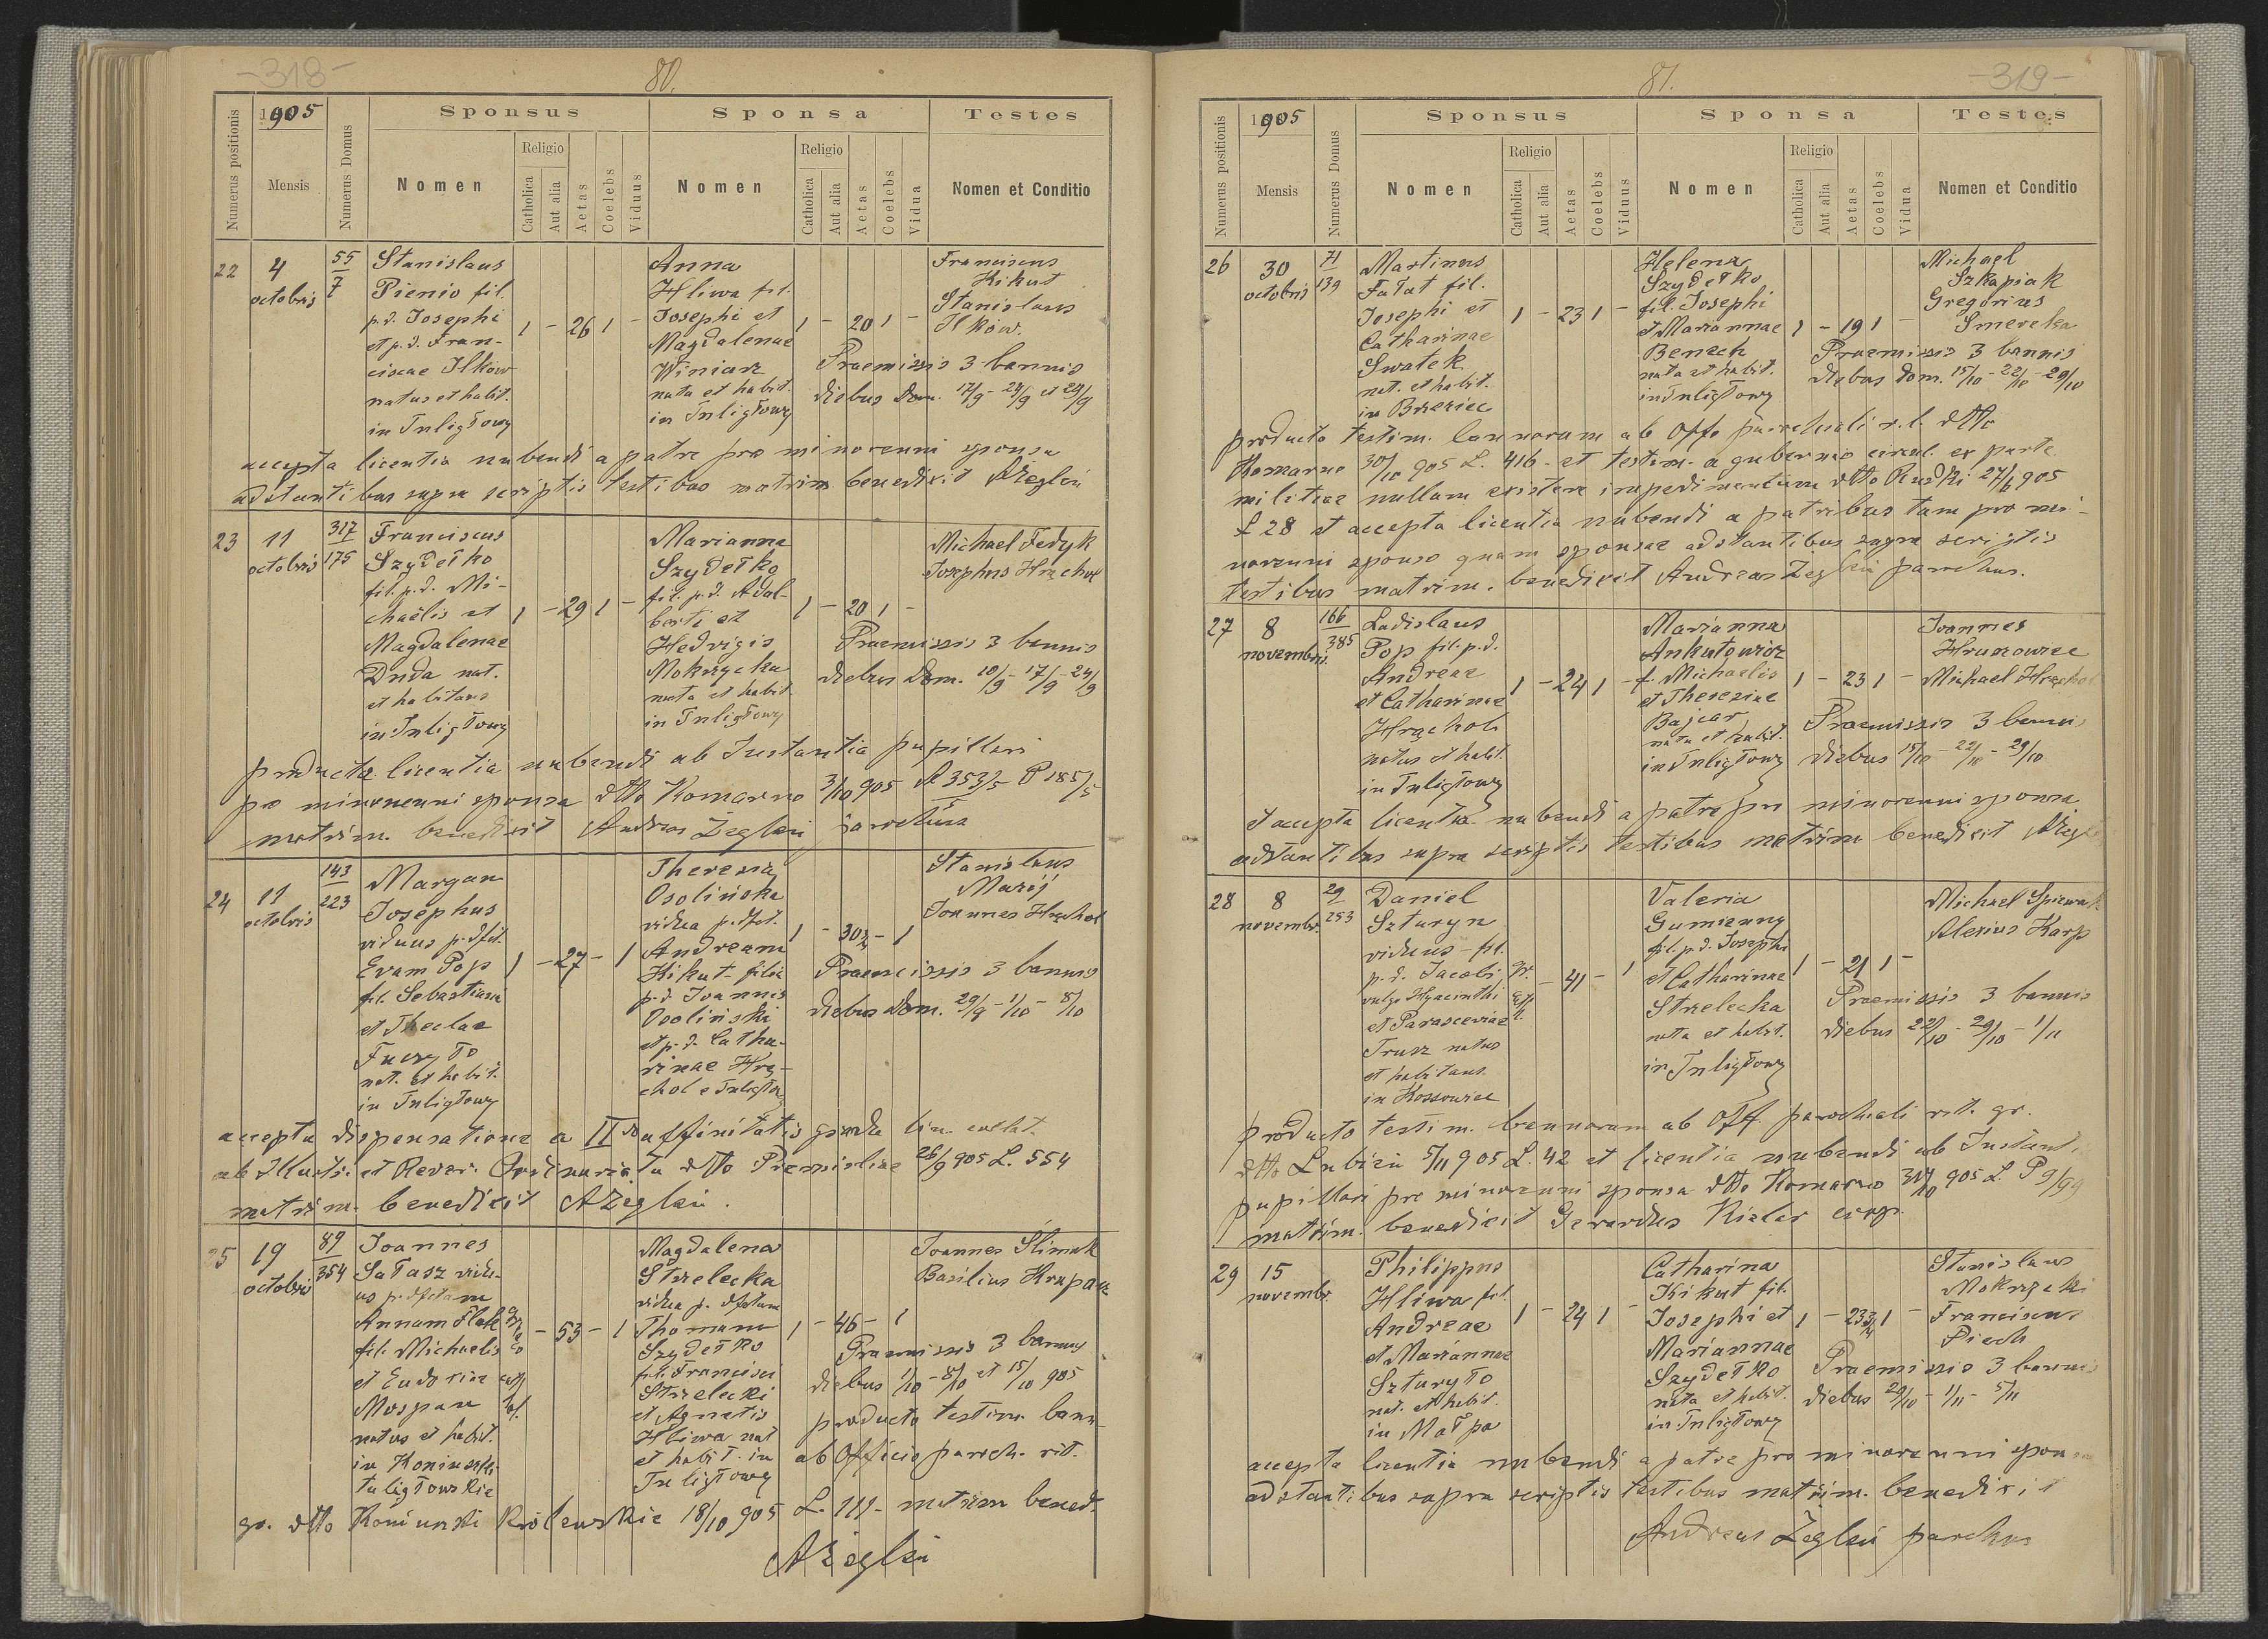 -318-
80.
Numerus positionis
1905
Mensis
Numerus Domus
Sponsus
Nomen
Religio
Catholica
Aut alia
Aetas
Coelebs
Viduus
Sponsa
Nomen
Religio
Catholica
Aut alia
Aetas
Coelebs
Vidua
Testes
Nomen et Conditio
22
4
octobris
55
7
Stanislaus
Pienio fil.
p.d. Josephi
et p.d. Fran-
ciscae Ilków
natus et habit.
in Tuligłowy
1 - 26 1 -
Anna
Hliwa fil.
Josephi et
Magdalenae
Winiarz
nata et habit.
in Tuligłowy
1 - 20 1 -
Franciscus
Kikut
Stanislaus
Ilków.
Praemissis 3 bannis
diebus Dom. 17/9 - 24/9 et 29/9
accepta licentia nubendi a patre pro minorenni sponsa
adstantibus supra scriptis testibus matrim. benedixit AŻegleń
23
11
octobris
317
175
Franciscus
Szydełko
fil. p.d. Mi-
chaëlis et
Magdalenae
Duda nat.
et habitans
in Tuligłowy
1 - 29 1 -
Marianna
Szydełko
fil. p.d. Adal-
berti et
Hedvigis
Mokrzycka
nata et habit.
in Tuligłowy
1 - 20 1 -
Michael Fedyk
Josephus Hrachol
Praemissis 3 bannis
diebus Dom. 10/9 - 17/9 - 24/9
producta licentia nubendi ab Instantia pupillari
pro minorenni sponsa dtto Komarno 3/10 905 A 353/5 P 185/5
matrim. benedixit Andreas Żegleń parochus
24
11
octobris
143
223
Margan
Josephus
viduus p. dfct.
Evam Pop
fil. Sebastiani
et Theclae
Fuczyło
nat. et habit.
in Tuligłowy
1 - 27 - 1
Theresia
Osolińska
vidua p. dfct.
Andream
Kikut filia
p.d. Joannis
Osoliński
et p.d. Catha-
rinae Hra-
chol e Tuligłowy
1 - 30 - 1
Stanislaus
Joannes Hrachol
Praemissis 3 bannis
diebus Dom. 29/9 - 1/10 - 8/10
accepta dispensatione a II affinitatis gradu
ab Illustr. et Rever. Ordinariatu dtto Premisliae 26/9 905 L. 554
matrim. benedixit AŻegleń.
25
19
octobris
89
354
Joannes
Sałasz vidu-
us p. dfctam
Annam Flak
fil. Michaelis
et Eudoxiae
Mospan
natus et habit.
in Koniuszki
tuligłowskie
- 53 - 1
Magdalena
Strzelecka
vidua p. dfctum
Thomam
Szydełko
fil. Francisci
Strzelecki
et Agnetis
Hliwa nat
et habit. in
Tuligłowy
1 - 46 - 1
Joannes Slimak
Basilius Hrapan
Praemissis 3 bannis
diebus 1/10 - 8/10 et 15/10 905
producto testim. bann.
ab Officio paroch. rit.
gr. dtto Koniuszki Królewskie 18/10 905 L. 111 - matrim bened.
AŻegleń
81.
-319-
Numerus positionis
1905
Mensis
Numerus Domus
Sponsus
Nomen
Religio
Catholica
Aut alia
Aetas
Coelebs
Viduus
Sponsa
Nomen
Religio
Catholica
Aut alia
Aetas
Coelebs
Vidua
Testes
Nomen et Conditio
26
30
octobris
71
139
Martinus
Fałat fil.
Josephi et
Catharinae
Swatek
nat. et habit.
in Brzeziec
1 - 23 1 -
Helena
Szydełko
fil. Josephi
et Mariannae
Benech
nata et habit.
in Tuligłowy
1 - 19 1 -
Michael
Szkapiak
Gregorius
Smereka
Praemissis 3 bannis
diebus Dom. 15/10 - 22/10 - 29/10
producto testim. bannorum ab Offo parochiali r.l. dtto
Komarno 30/10 905 L. 416 - et testim. a gubernio circul. ex parte
militiae nullum existere impedimentum dtto Rudki 27/6 905
L 28 et accepta licentia nubendi a patribus tam pro mi-
norenni sponso quam sponsae adstantibus supra scriptis
testibus matrim. benedixit Andreas Żegleń parochus.
27
8
novembris.
166
385
Ladislaus
Pop fil. p.d.
Andreae
et Catharinae
Hrachol
natus et habit.
in Tuligłowy
1 - 24 1 -
Marianna
Ankutowicz
f. Michaelis
et Theresiae
Bajcar
nata et habit.
in Tuligłowy
1 - 23 1 -
Joannes
Hruszowiec
Michael Hrachol
Praemissis 3 banni
diebus 15/10 - 22/10 - 29/10
et accepta licentia nubendi a patre pro minorenni sponsa
adstantibus supra scriptis testibus matrim benedixit AŻegl
28
8
novembr.
29
253
Daniel
Szturyn
viduus - fil.
p.d. Jacobi
vulgo Hyacinthi
et Parasceviae
Trusz natus
et habitans
in Kossowiec
- 41 - 1
Valeria
Gumienny
fil. p.d. Josephi
et Catharinae
Strzelecka
nata et habit.
in Tuligłowy
1 - 21 1 -
Michael Spiewak
Alexius Karp
Praemissis 3 bannis
diebus 22/10 - 29/10 - 1/11
producto testim. bannorum ab Off. parochiali rit. gr.
dtto Lubień 5/11 905 L. 42 et licentia nubendi ab Instanti
pupillari pro minorenni sponsa dtto Komarno 905 L. P 9/99
matrim. benedixit Gerardus coop.
29
15
novembr.
Philippus
Hliwa fil.
Andreae
et Mariannae
Szturyło
nat. et habit.
in Małpa
1 - 24 1 -
Catharina
Kikut fil.
Josephi et
Mariannae
Szydełko
nata et habit.
in Tuligłowy
1 - 23 3/4 1 -
Stanislaus
Mokrzycki
Franciscus
Piech
Praemissis 3 bannis
diebus 29/10 - 1/11 - 5/11
accepta licentia nubendi a patre pro minorenni sponsa
adstantibus supra scriptis testibus matrim. benedixit
Andreas Żegleń parochus